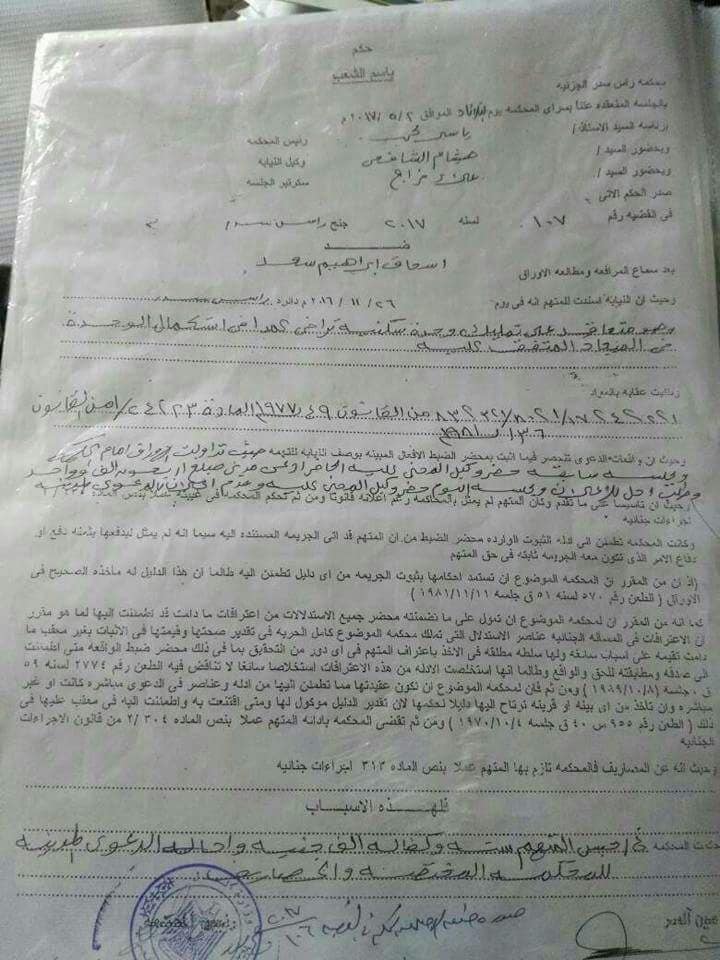 حكم
باسم الشعب
بمحكمة راس سدر الجزئية
بالجلسة المنعقده علنا بسراى المحكمه يوم الموافق ٢/ ٥/ ٢٠١٧ م
برئاسة السيد الاستاذ/ ياسر رئيس المحكمه
وبحضور السيد / هشام الشافعى وكيل النيابه
وبحضور السيد / سكرتير الجلسه
صدر الحكم الاتى
فى القضيه رقم ١٠٧ لسنه ٢٠١٧ جنح راس سدر
ضد
اسحاق ابراهيم سعد
بعد سماع المرافعه ومطالعه الاوراق
وحيث ان النيابه اسندت للمتهم انه فى يوم ٢٦ / ١١ / ٢٠١٦ م دائره راس سدر
وهو متعاقد على تمليك وحدة سكنية تراخى عمدا فى استكمال الوحدة
فى الميعاد المتفق عليه
وطلبت عقابه بالمواد
من القانون ٤٩ لسنة ١٩٧٧ المادة من القانون
١٣٦ لسنة ١٩٨١
وحيث ان واقعات الدعوى تنحصر فيما اثبت بمحضر الضبط الافعال المبينه بوصف النيابه للتهمه حيث تداولت الاوراق امام المحكمة
وبجلسه سابقة حضر وكيل المجنى عليه
وطلب اجل للاعلان وبجلسه اليوم حضر وكيل المجنى عليه
وحيث ان تاسيسا على ما تقدم وكان المتهم لم يمثل بالمحاكمه رغم اعلانه قانونا ومن ثم تحكم المحكمه فى غيبته عملا بنص الماده
اجراءات جنائيه
وكانت المحكمه تطمئن الى ادله الثبوت الوارده محضر الضبط من ان المتهم قد اتى الجريمه المسنده اليه سيما انه لم يمثل ليدفعها بثمه دفع او
دفاع الامر الذى تكون معه الجريمه ثابته فى حق المتهم
(اذ ان من المقرر ان المحكمه الموضوع ان تستمد احكامها بثبوت الجريمه من اى دليل تطمئن اليه طالما ان هذا الدليل له ماخذه الصحيح فى
الاوراق ( الطعن رقم ٥٧٠ لسنه ٥١ ق جلسه ١٩٨١/١١/١١ )
كما انه من المقرر ان لمحكمه الموضوع ان تعول على ما تضمنته محضر جميع الاستدلالات من اعترافات ما دامت قد اطمئنت اليها لما هو مقرر
ان الاعترافات فى المساله الجنائيه عناصر الاستدلال التى تملك محكمه الموضوع كامل الحريه فى تقدير صحتها وقيمتها فى الاثبات بغير معقب ما
دامت تقيمه على اسباب سائغه ولها سلطه مطلقه فى الاخذ باعتراف المتهم فى اى دور من التحقيق بما فى ذلك محضر ضبط الواقعه متى اطمئنت
الى صدقه ومطابقته للحق والواقع وطالما انها استخلصت الادله من هذه الاعترافات استخلاصا سائغا لا تناقض فيه الطعن رقم ٢٧٧٤ لسنه ٥٩
ق ، جلسه (١٩٨٩/١٠/٨ ) ومن ثم فان لمحكمه الموضوع ان تكون عقيدتها مما تطمئن اليها من ادله وعناصر فى الدعوى مباشره كانت او غير
مباشره وان تاخذ من اى بينه او قرينه ترتاح اليها دليلا لحكمها لان تقدير الدليل موكول لها ومتى اقتنعت به واطمئنت اليه فى معقب عليها فى
ذلك ( الطعن رقم ٩٥٥ س ٤٠ ق جلسه ١٩٧٠/١٠/٤ ) ومن ثم تقضى المحكمه بادانه المتهم عملا بنص الماده ٣٠٤ /٢ من قانون الاجراءات
الجنائيه
وحيث انه عن المصاريف فالمحكمه تلزم بها المتهم عملا بنص الماده ٣١٣ اجراءات جنائيه
فلهذه الاسباب
المحكمه حبس المتهم سنه وكفاله الف جنيه واحاله الدعوى المدنيه
للمحكمه المختصه والمصاريف